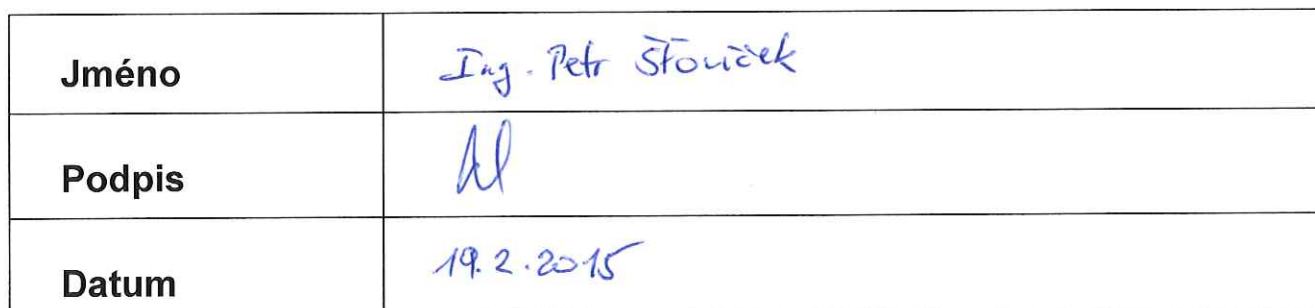 Jméno Ing. Petr Šťovíček
Podpis
Datum 19.2.2015